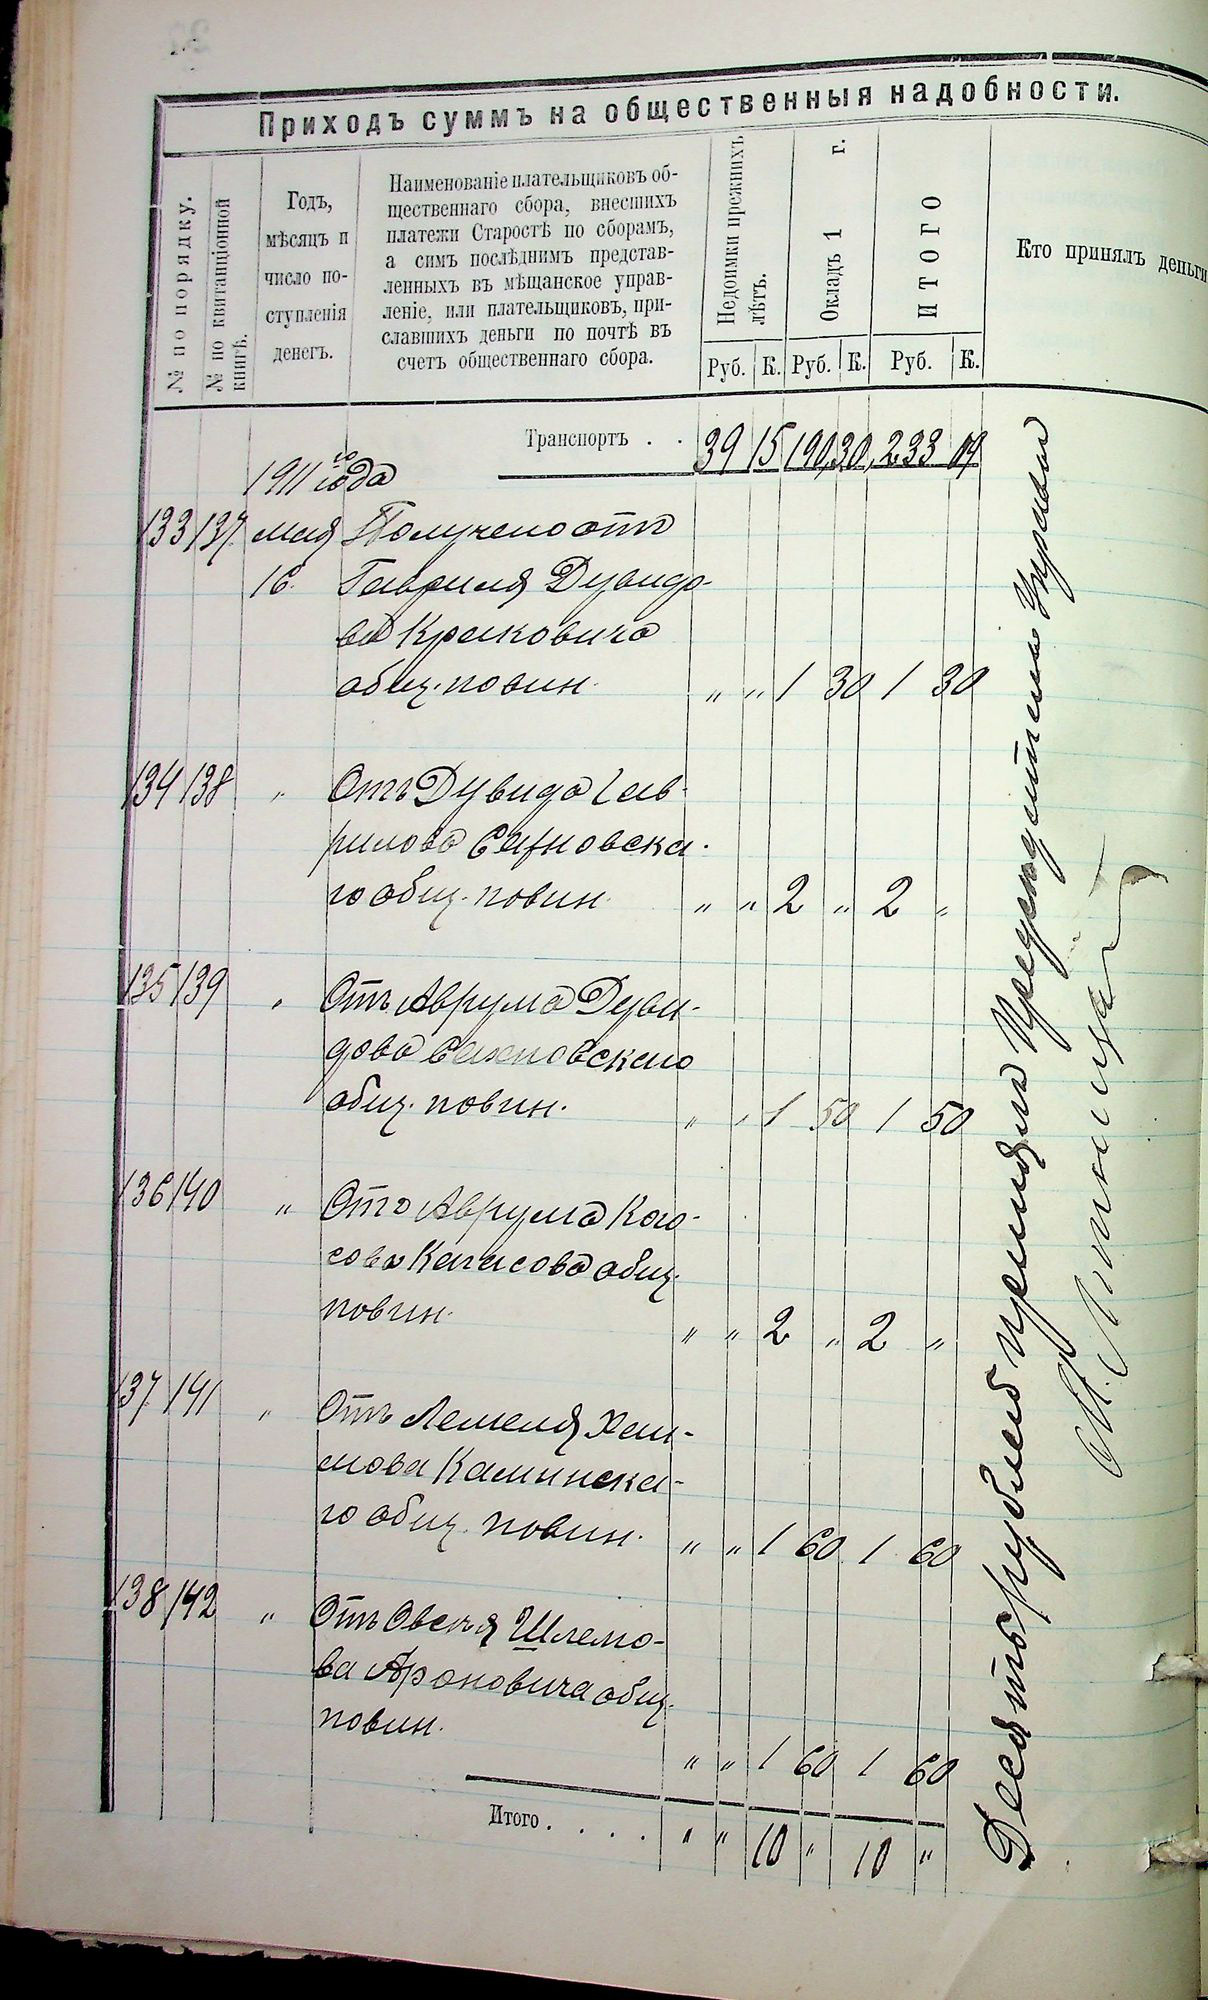 Приходъ суммъ на общественныя надобности.
№ по порядку.
№ по квитанціонной
книгѣ.
Годъ,
мѣсяцъ и
число по-
ступленія
денегъ.
Наименованіе плательщиковъ об-
щественнаго сбора, внесшихъ
платежи Старостѣ по сборамъ,
а симъ послѣднимъ представ-
ленныхъ въ мѣщанское управ-
леніе, или плательщиковъ, при-
славшихъ деньги по почтѣ въ
счетъ общественнаго сбора.
Недоимки прежнихъ
лѣтъ.
Окладъ 1 г.
ИТОГО
Кто принялъ деньги
Руб. К. Руб. К. Руб. К.
Транспортъ . . 39 15 190 30 233 09
1911 года
133 137 мая Получено отъ
16 Гавриля Дувидо-
ва
общ. повин. " " 1 30 1 30
134 138 " Отъ Дувида Гав-
рилова
го общ. повин. " " 2 " 2 "
135 139 " Отъ Аврума Дуви-
дова Сахновскаго
общ. повин. " " 1 50 1 50
136 140 " Отъ Аврума Кого-
сова Кагасова общ.
повин. " " 2 " 2 "
137 141 " Отъ Хаи-
мова Каминска-
го общ. повин. " " 1 60 1 60
138 142 " Отъ Овсея Шлемо-
ва Ароновича общ.
повин. " " 1 60 1 60
Итого . . . . " " 10 " 10 "
Десять рублей принялъ Предсѣдатель Управы